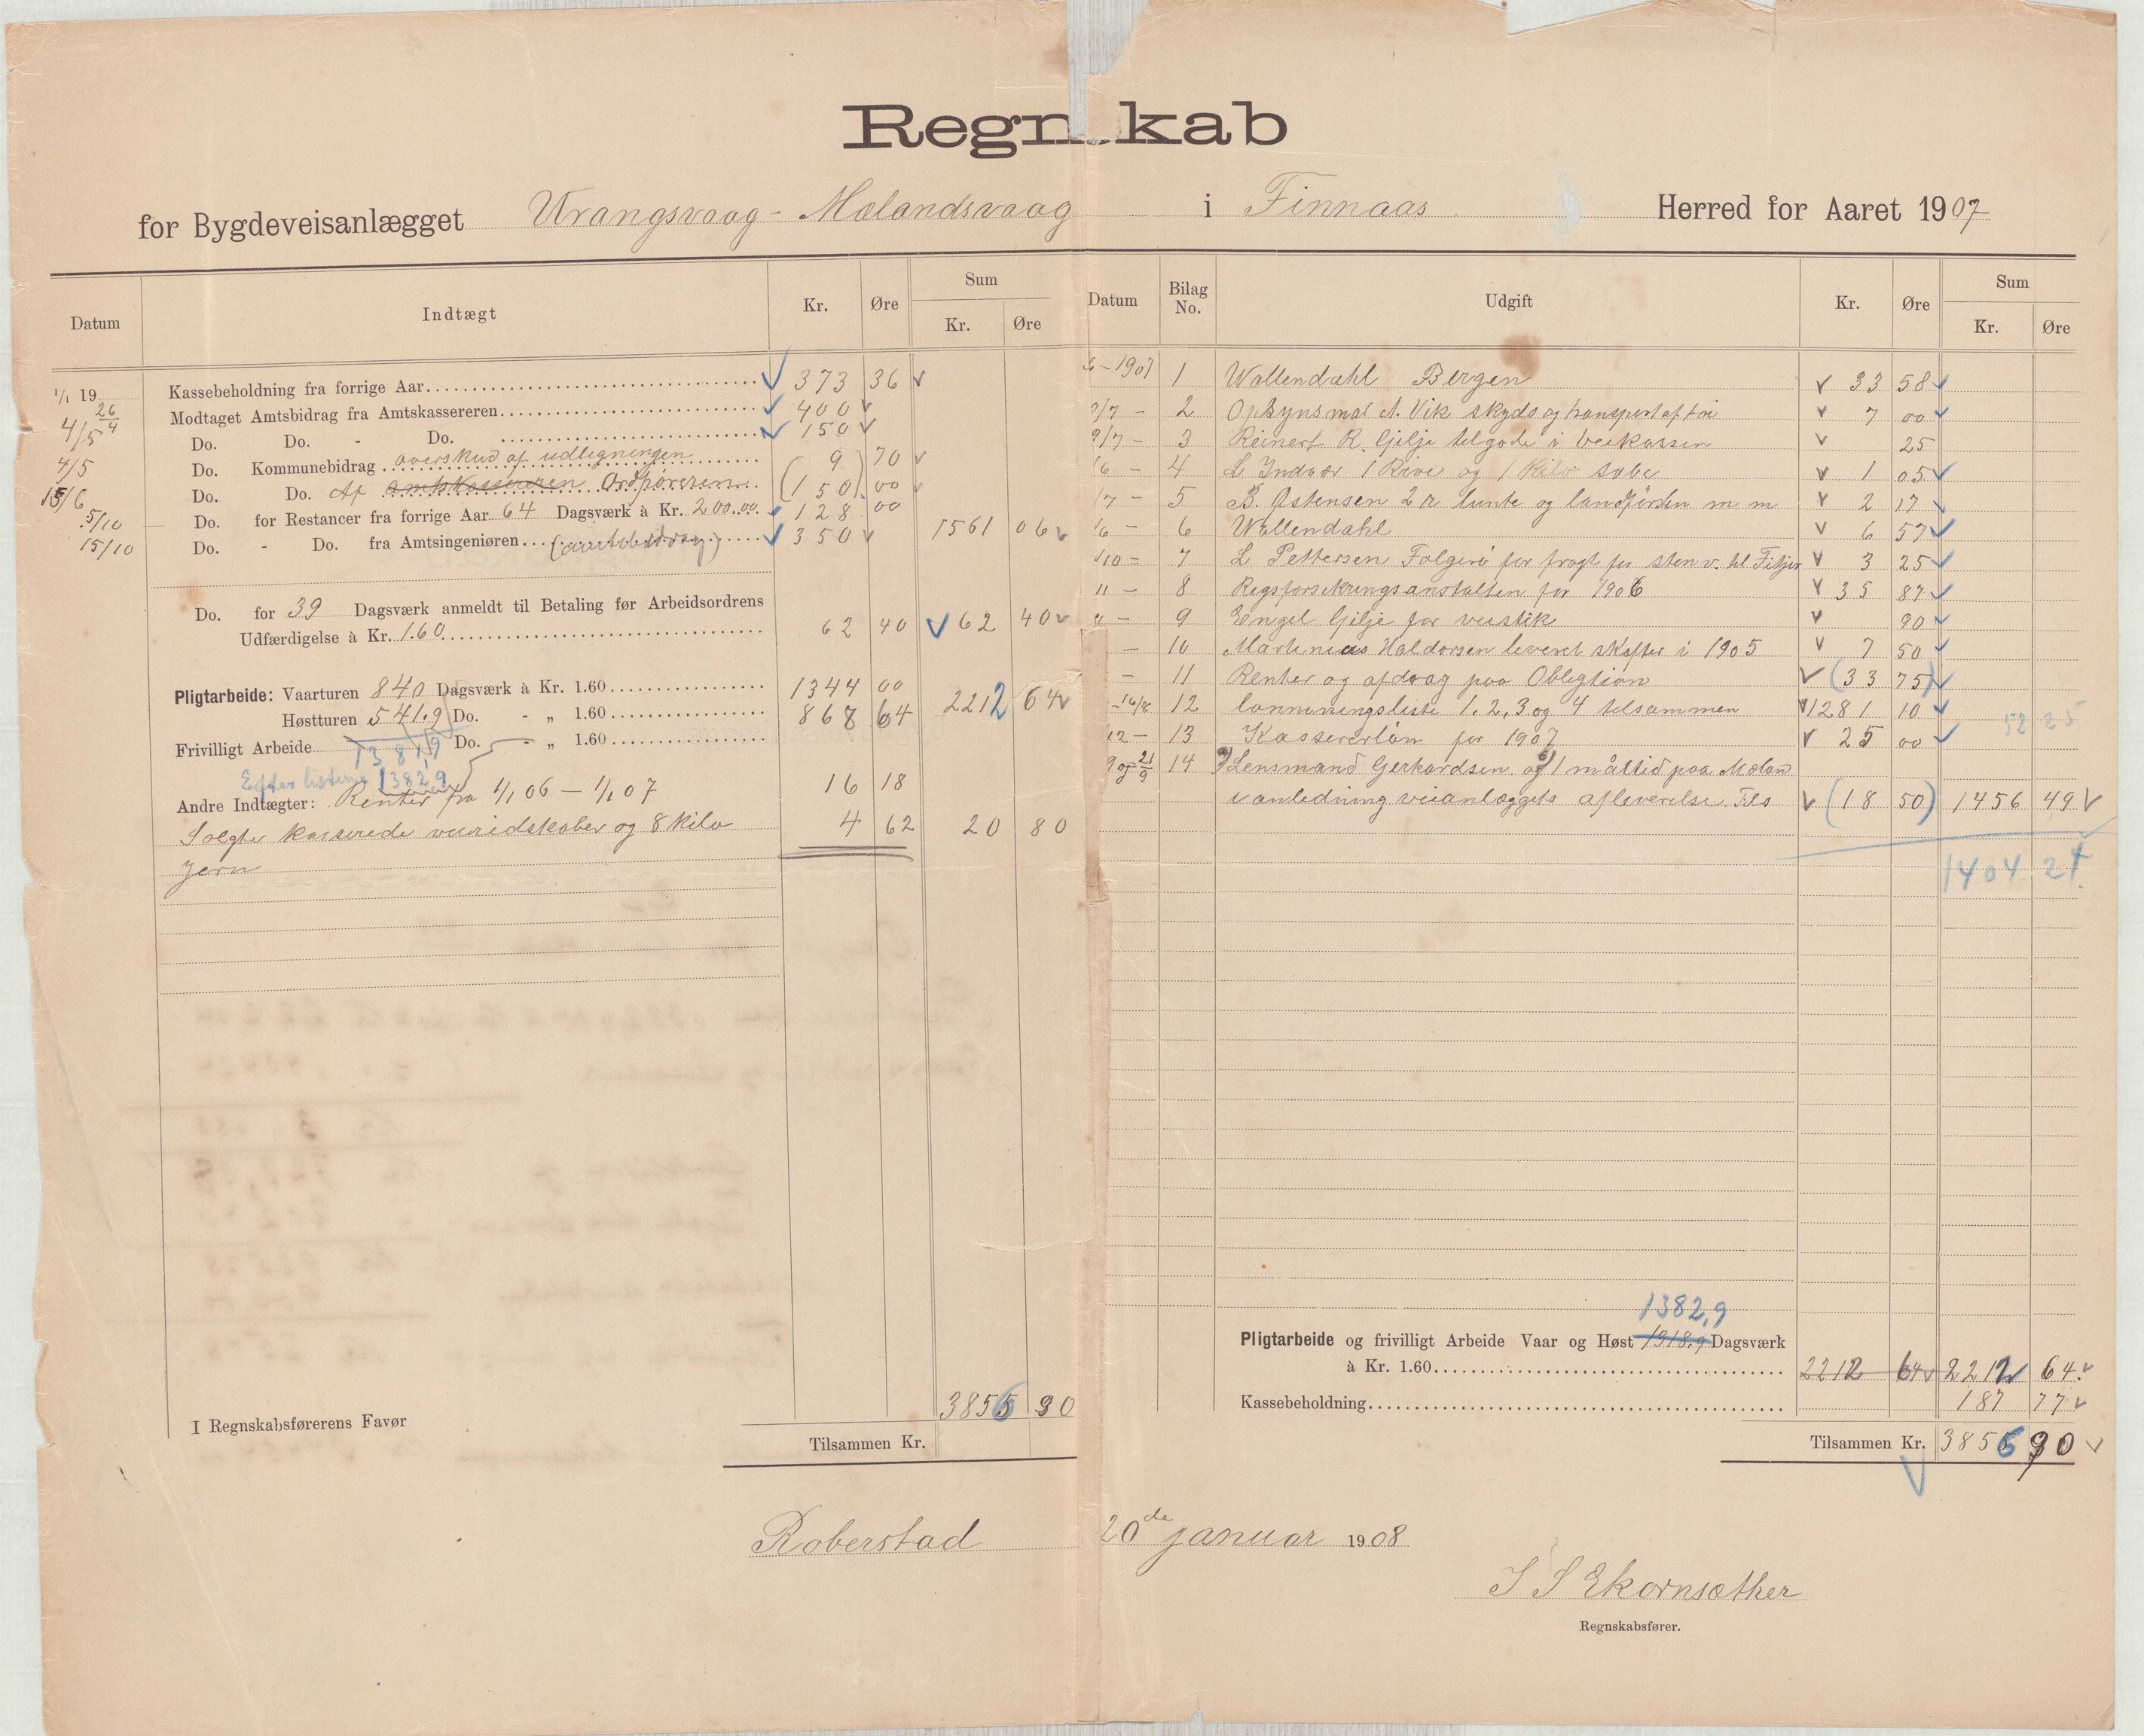 Regn kab
for Bygdeveisanlægget Urangsvaag - Mælandsvaag i Finnaas Herred for Aaret 1907
Datum Indtægt Kr. Øre Sum Kr. Øre
1/1 19 Kassebeholdning fra forrige Aar 373 36
4/5 26/9 Modtaget Amtsbidrag fra Amtskassereren 400
Do. Do. - Do. 150
4/5 Do. Kommunebidrag overskud af udligningen 9 70
15/6 Do. Do. Af Amtskassereren Ordføreren (150) 00
5/10 Do. for Restancer fra forrige Aar 64 Dagsværk à Kr. 200.00 128 00
15/10 Do. - Do. fra Amtsingeniøren 350 1561 06
Do. for 39 Dagsværk anmeldt til Betaling før Arbeidsordrens
Udfærdigelse à Kr. 1.60 62 40 62 40
Pligtarbeide: Vaarturen 840 Dagsværk à Kr. 1.60 1344 00
Høstturen 541.9 Do. - „ 1.60 868 64 2212 64
Frivilligt Arbeide 1381,9 Do. - „ 1.60
Efter listerne 1382,9
Andre Indtægter: Renter fra 1/1 06 — 1/1 07 16 18
Solgte kasserede veiredskaber og 8 kilo 4 62 20 80
jern
3856 90
I Regnskabsførerens Favør
Tilsammen Kr.
Datum Bilag No. Udgift Kr. Øre Sum Kr. Øre
6 - 1907 1 Wallendahl Bergen 33 58
2/7 - 2 Opsynsmd A. Vik skyds og transport af 7 00
9/7 - 3 Reinert R. Gjilje tilgode i veikassen 25
/6 - 4 L Indvær 1 Rive og 1 kilo sæbe 1 05
/7 - 5 B. Østensen 2 r lunte og m m 2 17
/6 - 6 Wallendahl 6 57
/10 - 7 L Pettersen Folgerø for fragt for sten v. til Fitjer 3 25
11 - 8 Rigsforsikringsanstalten for 1906 35 87
- 9 Engel Gilje for veistik 90
- 10 Martinius Haldorsen leveret skafter i 1905 7 50
- 11 Renter og afdrag paa Obligtion (33 75)
- 16/8 12 lønningsliste 1, 2, 3 og 4 tilsammen 1281 10 52 25
12 - 13 Kassererløn for 1907 25 00
9 og 21/9 14 Lensmand Gerhardsen og 1 måltid paa Mælan
i anledning veianlæggets afleverelse. Tils (18 50) 1456 49
1404 24
1382,9
Pligtarbeide og frivilligt Arbeide Vaar og Høst 1318,9 Dagsværk
à Kr. 1.60 2212 64 2212 64
Kassebeholdning 187 77
Tilsammen Kr. 3856 90
Roberstad 20de januar 1908
J S Ekornsæther
Regnskabsfører.